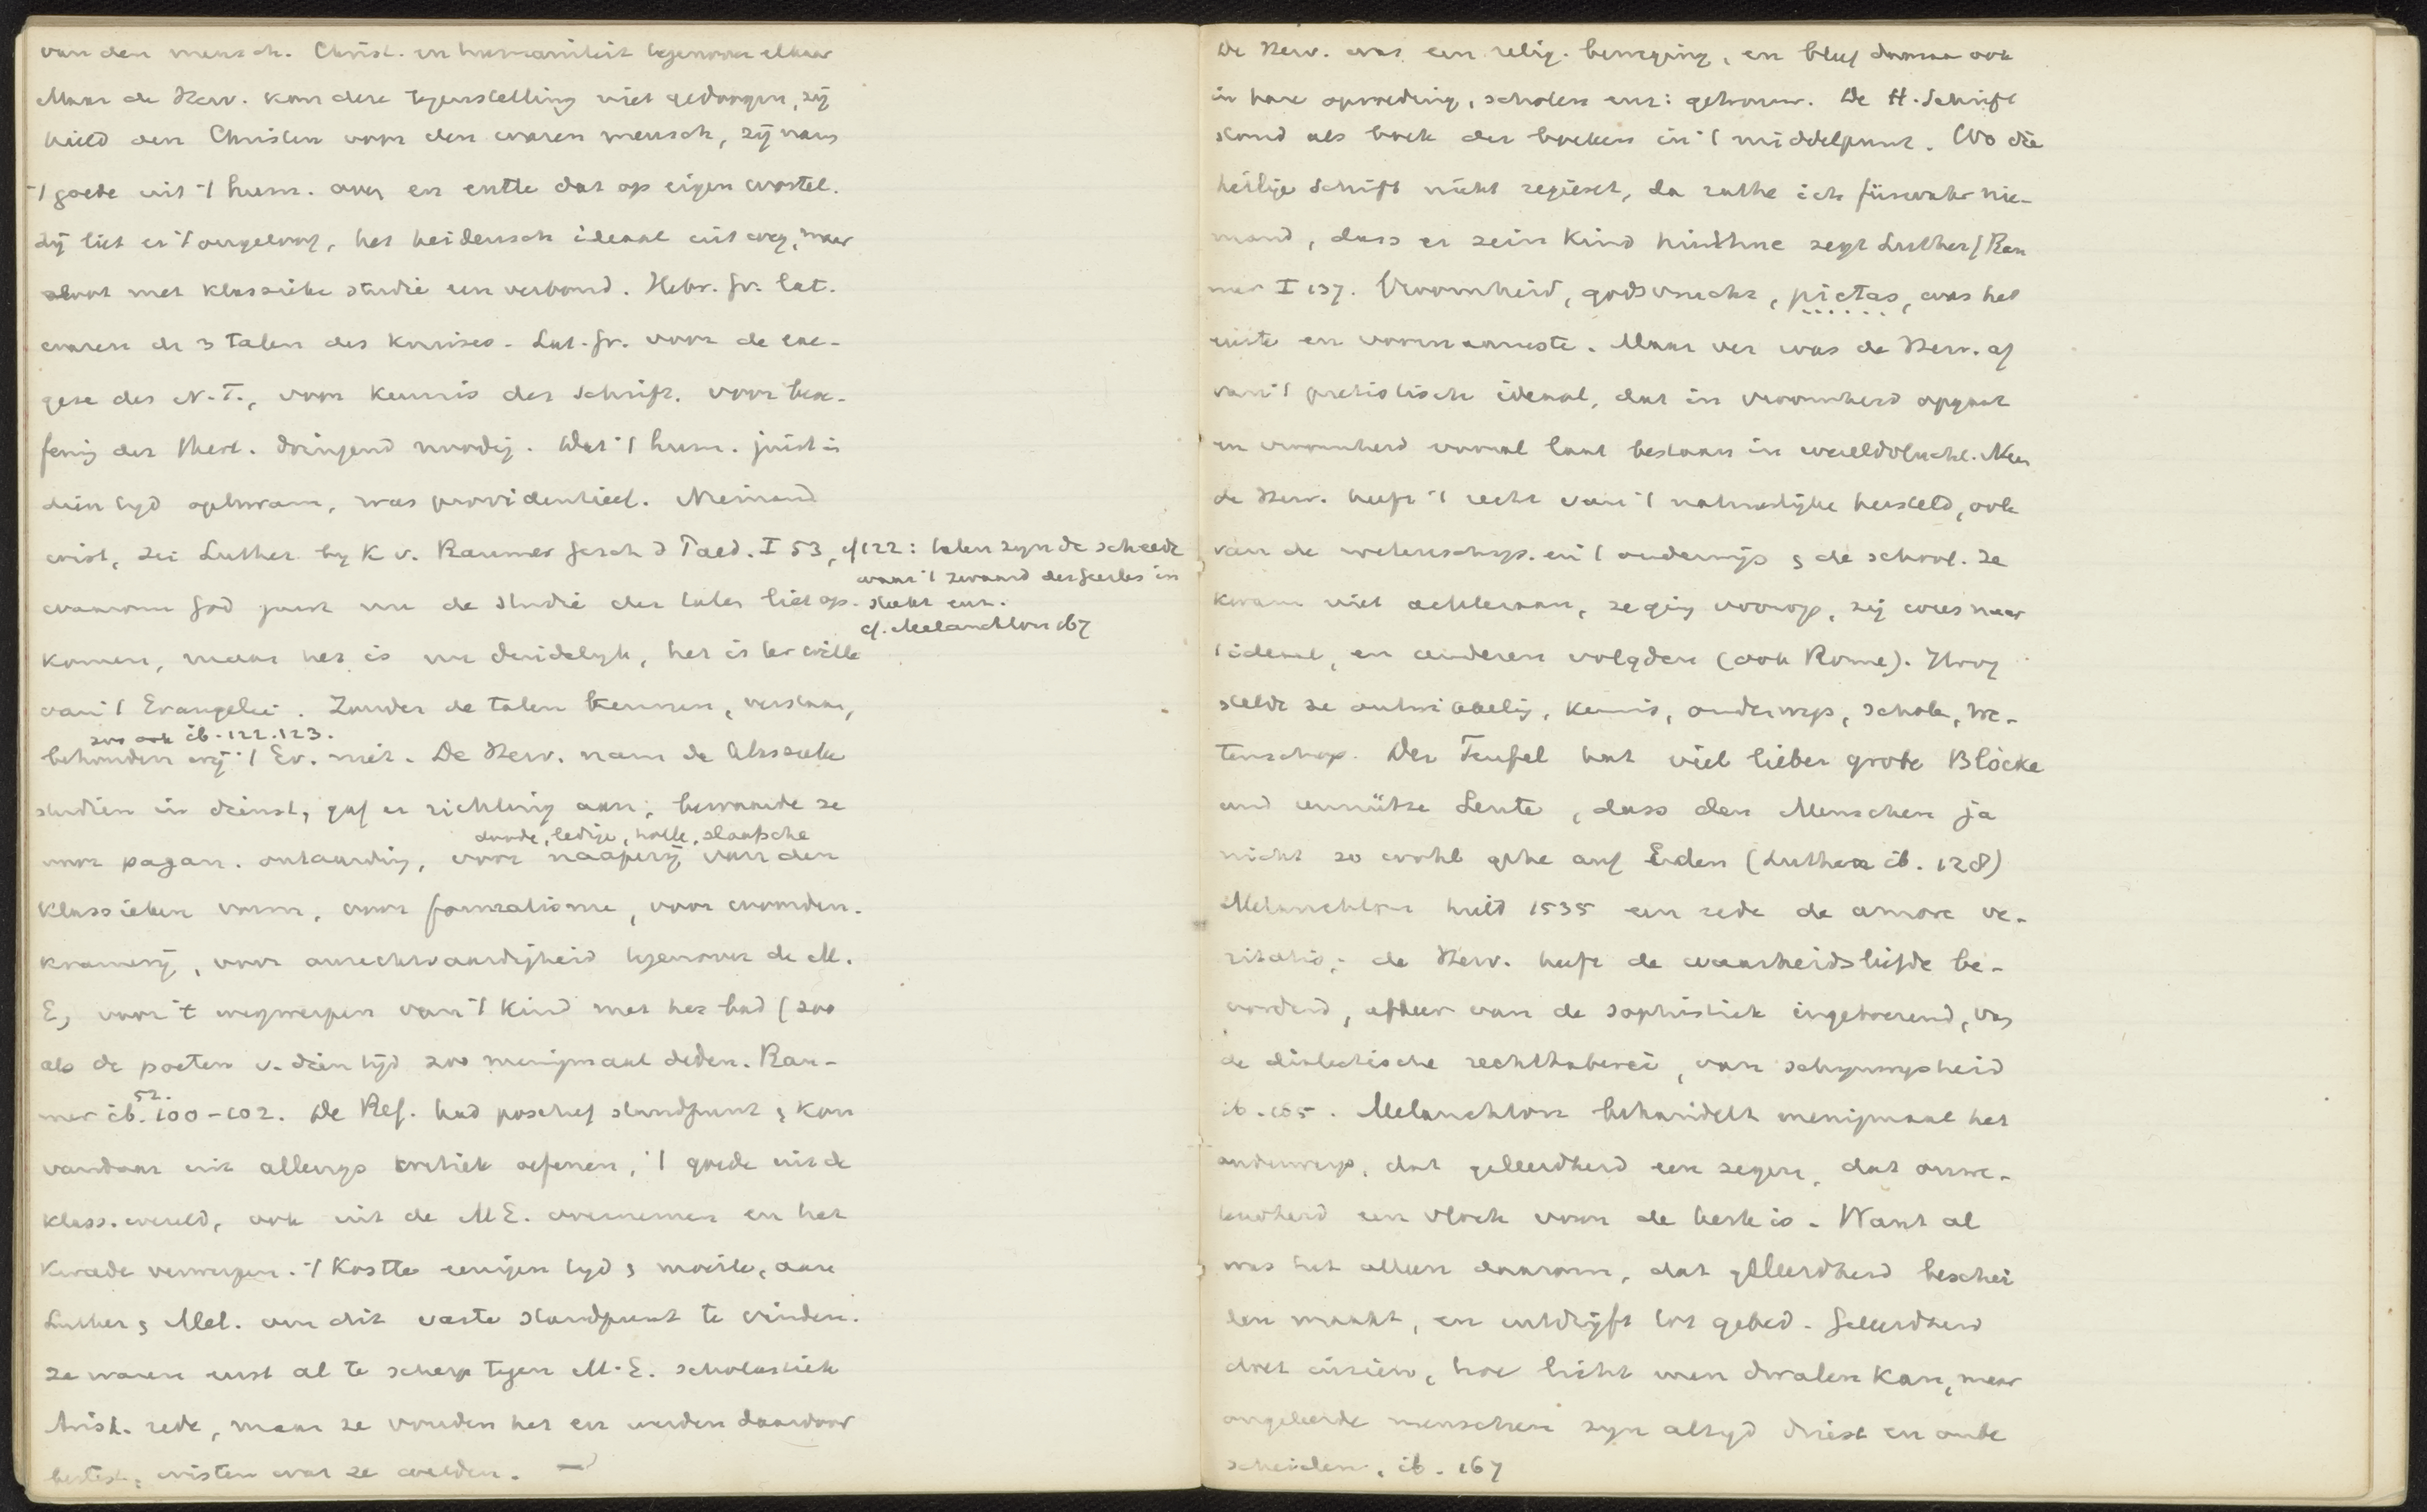 van den mensch. Christ. en humaniteit tegenover elkaar
Maar de Herv. kon deze tegenstelling niet gedoogen, zij
hield den Christen voor den waren mensch, zij nam
't goede uit 't hum. over en entte dat op eigen wortel.
Zij liet er 't ongeloof, het heidensch ideaal uit weg, maar
sloot met klassieke studie een verbond. Hebr. Gr. Lat.
waren de 3 talen des kruises. Lat. Gr. voor de exe-
gese des N.T., voor kennis der Schrift, voor beoe-
fenig der theol. dringend noodig. Dat 't hum. juist in
dien tyd opkwam, was providentieel. Niemand
wist, zei Luther by K v. Raumer Gesch d Paed. I 53, cf 122: talen zyn de scheede
waar 't zwaard des Geestes in
waarom God juist nu de studie der talen liet op- steekt enz.
cf. Melanchton 167
komen, maar het is nu duidelyk, het is ter wille
van 't Evangelie. Zonder de talen kennen, verstaan,
zoo ook ib. 122.123.
behouden wij 't Ev. niet. De Herv. nam de klassieke
studien in dienst, gaf er richting aan; bewaarde ze
doode, ledige, holle, slaafsche
voor pagan. ontaarding, voor naäperij van den
klassieken vorm, voor formalisme, voor woorden-
kramerij, voor onrechtvaardigheid tegenover de M.
E, voor 't wegwerpen van 't kind met het bad (zoo
als de poeten v. dien tijd zoo menigmaal deden. Rau-
52.
mer ib. 100-102. De Ref. had positief standpunt & kon
vandaar uit allengs kritiek oefenen, 't goede uit de
klass. wereld, ook uit de M E. overnemen en het
kwade verwerpen. 't Kostte eenigen tyd & moeite, aan
Luther & Mel. om dit vaste standpunt te vinden.
Ze waren eerst al te scherp tegen M.E. scholastiek
Arist. rede, maar ze vonden het en werden daardoor
beslist, wisten wat ze wilden.
De Herv. was een relig. beweging, en bleef daaraan ook
in hare opvoeding, scholen enz: getrouw. De H. Schrift
stond als boek der boeken in 't middelpunt. Wo die
heilige Schrift nicht regiert, da rathe ich fürwahr nie-
mand, dass er sein Kind hinthue zegt Luther (Rau
mer I 137. Vroomheid, godsvrucht, pietas, was het
eerste en voornaamste. Maar ver was de Herv. af
van 't pietistisch ideaal, dat in vroomheid opgaat
en vroomheid vooral laat bestaan in wereldvlucht. Neen
de Herv. heeft 't recht van 't natuurlijke hersteld, ook
van de wetenschap. en 't onderwijs & de school. Ze
kwam niet achteraan, ze ging voorop, zij wees naar
't ideaal, en anderen volgden (ook Rome). Hoog
stelde ze ontwikkelig, kennis, onderwys, school, we-
tenschap. Der Teufel hat viel lieber grobe Blöcke
und unnütze Leute, dass den Menschen ja
nicht zo wohl gehe auf Erden (Luther ib. 128)
Melanchton hield 1535 een rede de amore ve-
ritatis; de Herv. heeft de waarheidsliefde be-
vorderd, afkeer van de sophistiek ingeboezemd, van
de dialectische rechthaberei, van schynwysheid
ib. 165. Melanchton behandelt menigmaal het
onderwerp, dat geleerdheid een zegen, dat onwe-
tendheid een vloek voor de kerk is. Want al
was het alleen daarom, dat geleerdheid beschei
den maakt, en uitdrijft tot gebed. Geleerdheid
doet inzien, hoe licht men dwalen kan, maar
ongeleerde menschen zyn altyd driest en onbe
scheiden. ib. 167